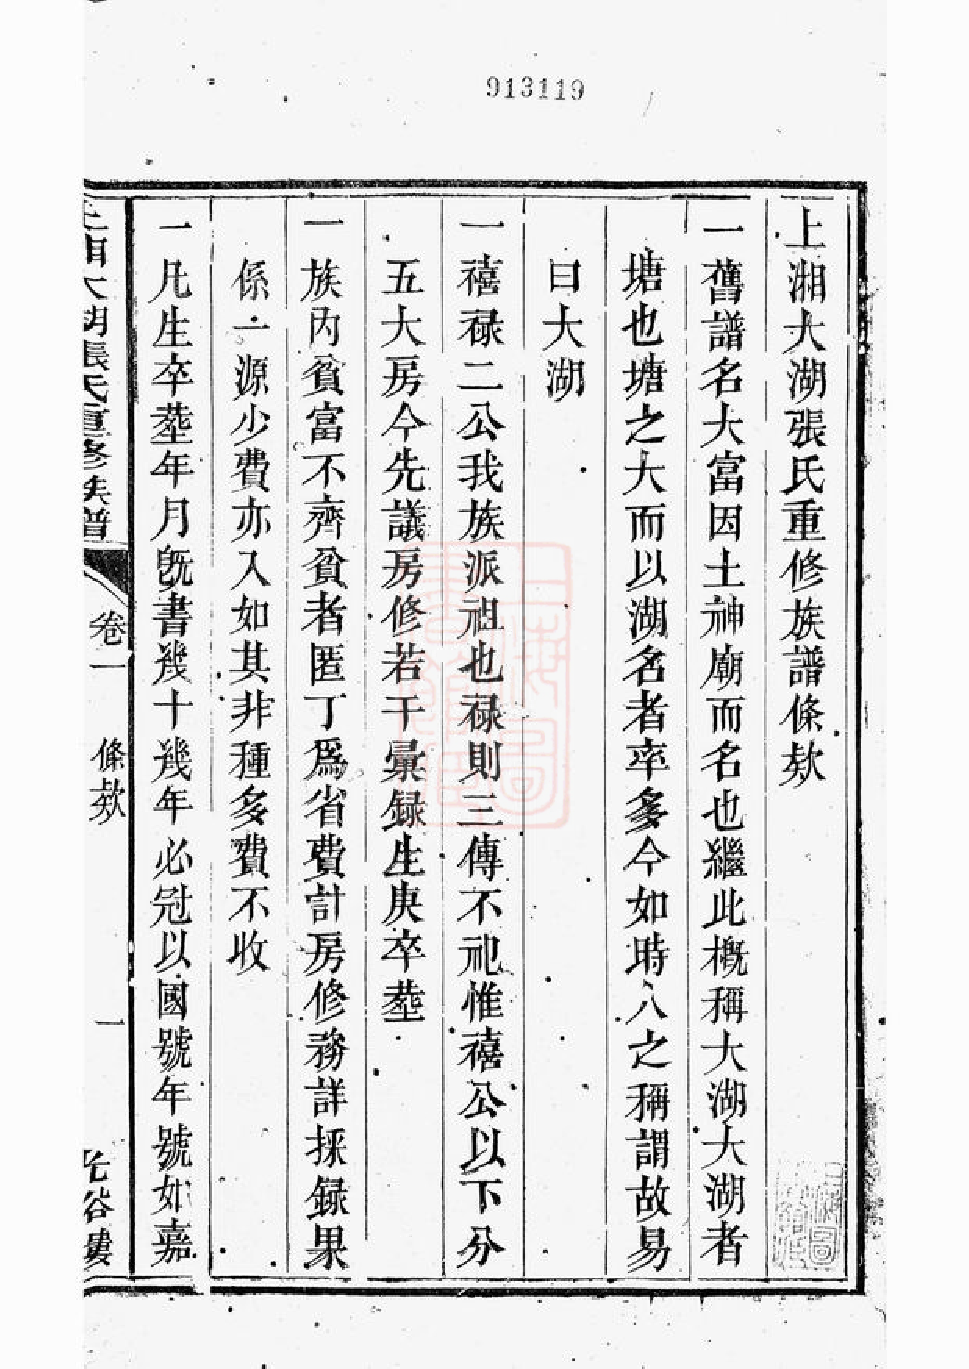 913119
上湘大湖張氏重修族譜條欵
一舊譜名大富因土神廟而名也繼此概稱大湖大湖者
塘也塘之大而以湖名者率多今如時人之稱謂故易
曰大湖
一禧禄二公我族派祖也禄則三傳不祀惟禧公以下分
五大房今先議房修若干彚録生庚卒塟
一族內貧富不齊貧者匿丁爲省費計房修務詳採録果
係一源少費亦入如其非種多費不收
一凡生卒塟年月既書幾十幾年必冠以國號年號如嘉
上湘大湖張氏重修族譜
卷一
條欵
一